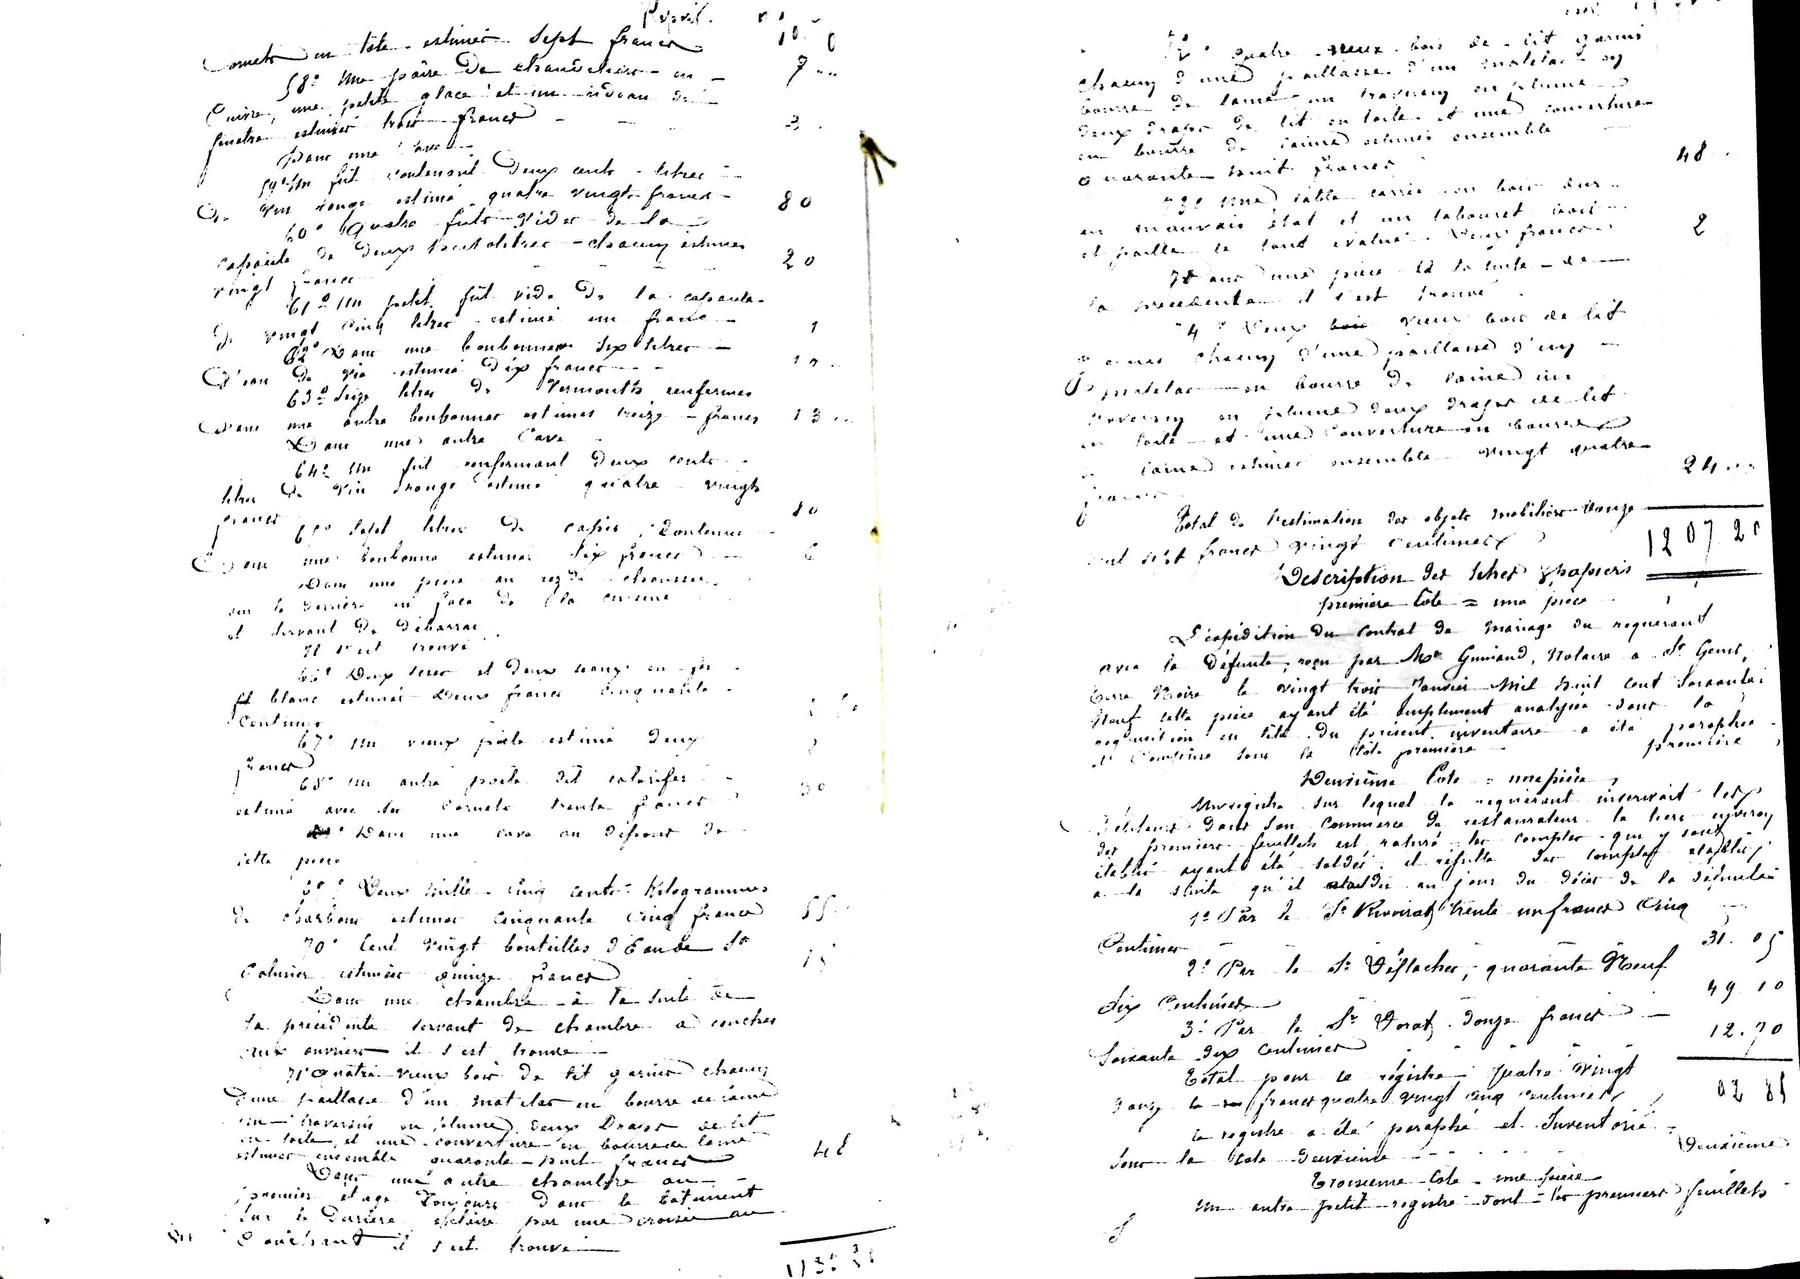 Report.
Cornets en tôle estimés sept francs 7
58° Une paire de chandeliers en
Cuivre, une petite glace et un rideau de
fenêtre estimés trois francs 3
Dans une Cave
59° Un fût contenant deux cents litres
De vin rouge estimé quatre vingts francs 80
60° Quatre fûts vides de la
capacité de deux hectolitres chacun estimés
vingt francs 20
61° Un petit fût vide de la capacité
de vingt cinq litres estimé un franc 1
62° Dans une bonbonne six litres
D'eau de vie estimés dix francs
63° Seize litres de Vermouth renfermés
dans une autre bonbonne estimés treize francs 13
Dans une autre Cave
64° Un fût renfermant deux cents
litres de vin rouge estimé quatre vingts
francs 80
65° Sept litres de cassis contenus
Dans une bonbonne estimés six francs 6
Dans une pièce au rez de chaussée
sur le derrière en face de la cuisine
et servant de débarras
Il s'est trouvé
66° Deux seaux en fer
blanc estimés Deux francs cinquante
Centimes
67° Un vieux poêle estimé deux
francs 2
68° Un autre poêle dit calorifère
estimé avec les Cornets trente francs 30
Dans une cave au dessous de
cette pièce
69° Deux mille cinq cents Kilogrammes
de charbon estimés cinquante cinq francs 55
70° Cent vingt bouteilles d'Eau de St
Galmier estimées quinze francs 15
Dans une chambre à la suite de
la précédente servant de chambre à coucher
aux ouvriers il s'est trouvé
71° Quatre vieux bois de lit garnis chacun
D'une paillasse d'un matelas en bourre de laine
un traversin en plume, deux Draps de lit
en toile, et une couverture en bourre de laine
estimés ensemble quarante huit francs 48
Dans une autre chambre au
premier étage toujours dans le bâtiment
sur le derrière éclairé par une croisée au
Couchant il s'est trouvé
72° quatre vieux bois de lit garnis
chacun d'une paillasse d'un matelas en
bourre de laine un traversin en plume
deux draps de lit en toile et une couverture
en bourre de laine estimés ensemble
quarante huit francs 48
73° Une table carrée en bois dur
en mauvais état et un tabouret bois
et paille le tout évalué deux francs 2
Dans une pièce à la suite de
la précédente il s'est trouvé
74° Deux vieux bois de lit
garnis chacun d'une paillasse d'un
matelas en bourre de laine un
traversin en plume deux draps de lit
en toile et une couverture en bourre
de laine estimés ensemble vingt quatre
francs 24
Total de l'estimation des objets mobiliers douze
cent sept francs vingt centimes 1207 20
Description des titres & papiers
première Cote = une pièce
L'expédition du Contrat de Mariage du requérant
avec la Défunte, reçu par Me Guniand, Notaire à St Genis,
Terre Noire le vingt trois Janvier Mil huit cent Soixante
Neuf cette pièce ayant été amplement analysée dans la
réquisition en tête du présent inventaire a été paraphée
et Comprise sous la Cote première première
Deuxième Cote = une pièce
Un registre sur lequel le requérant inscrivait les
débiteurs dans son Commerce de restaurateur le tiers environ
des premiers feuillets est raturé les comptes qui y sont
établis ayant été soldés, il résulte des comptes établis
à la suite qu'il était dû au jour du décès de la défunte
1° Par le Sr Rivoirat, trente un francs Cinq
Centimes 31. 05
2° Par le Sr Déflaches, quarante Neuf
dix Centimes 49 10
3° Par le Sr Vorat, douze francs
Soixante dix centimes 12. 70
Total pour ce registre Quatre Vingt
douze francs quatre vingt cinq centimes 92 85
Ce registre a été paraphé et Inventorié
sous la Cote deuxième Deuxième
Troisième Cote une pièce
Un autre petit registre dont les premiers feuillets